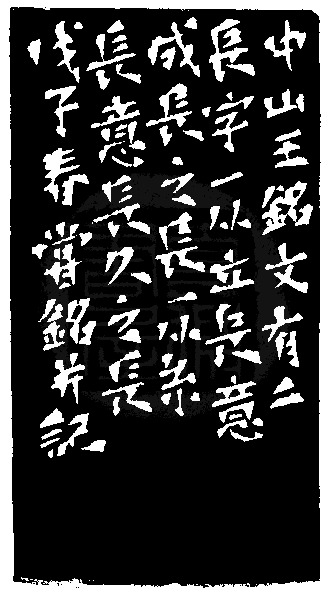 中山王銘文有二
長字一从立長意
成長之長一从糸
長意長久之長
戊子春嘗銘并記